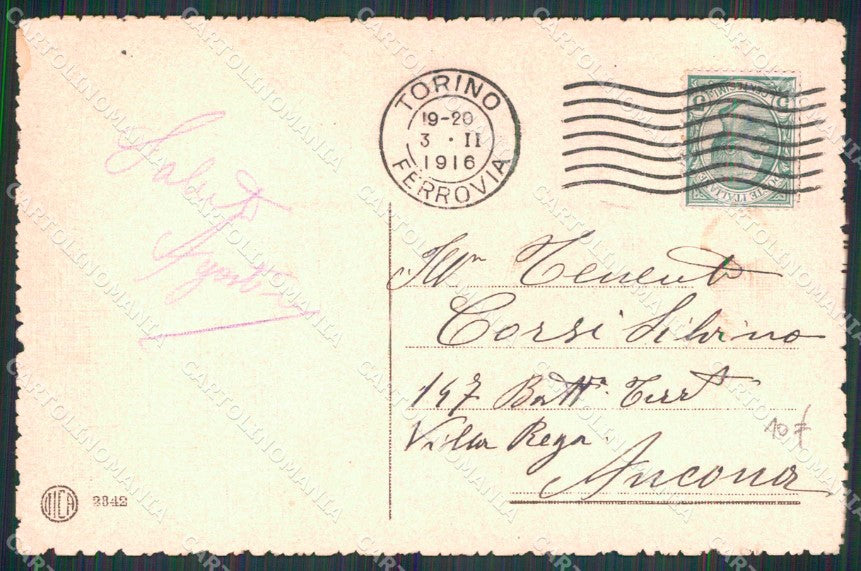 TORINO
19-20
3 · II
1916
FERROVIA
POSTE ITALIANE
Saluti
Agostino
Ill.mo Tenente
Corsi Silvino
147 Batt. Terr.
Villa Rega
Ancona
107
NICA
2342
CARTOLINOMANIA